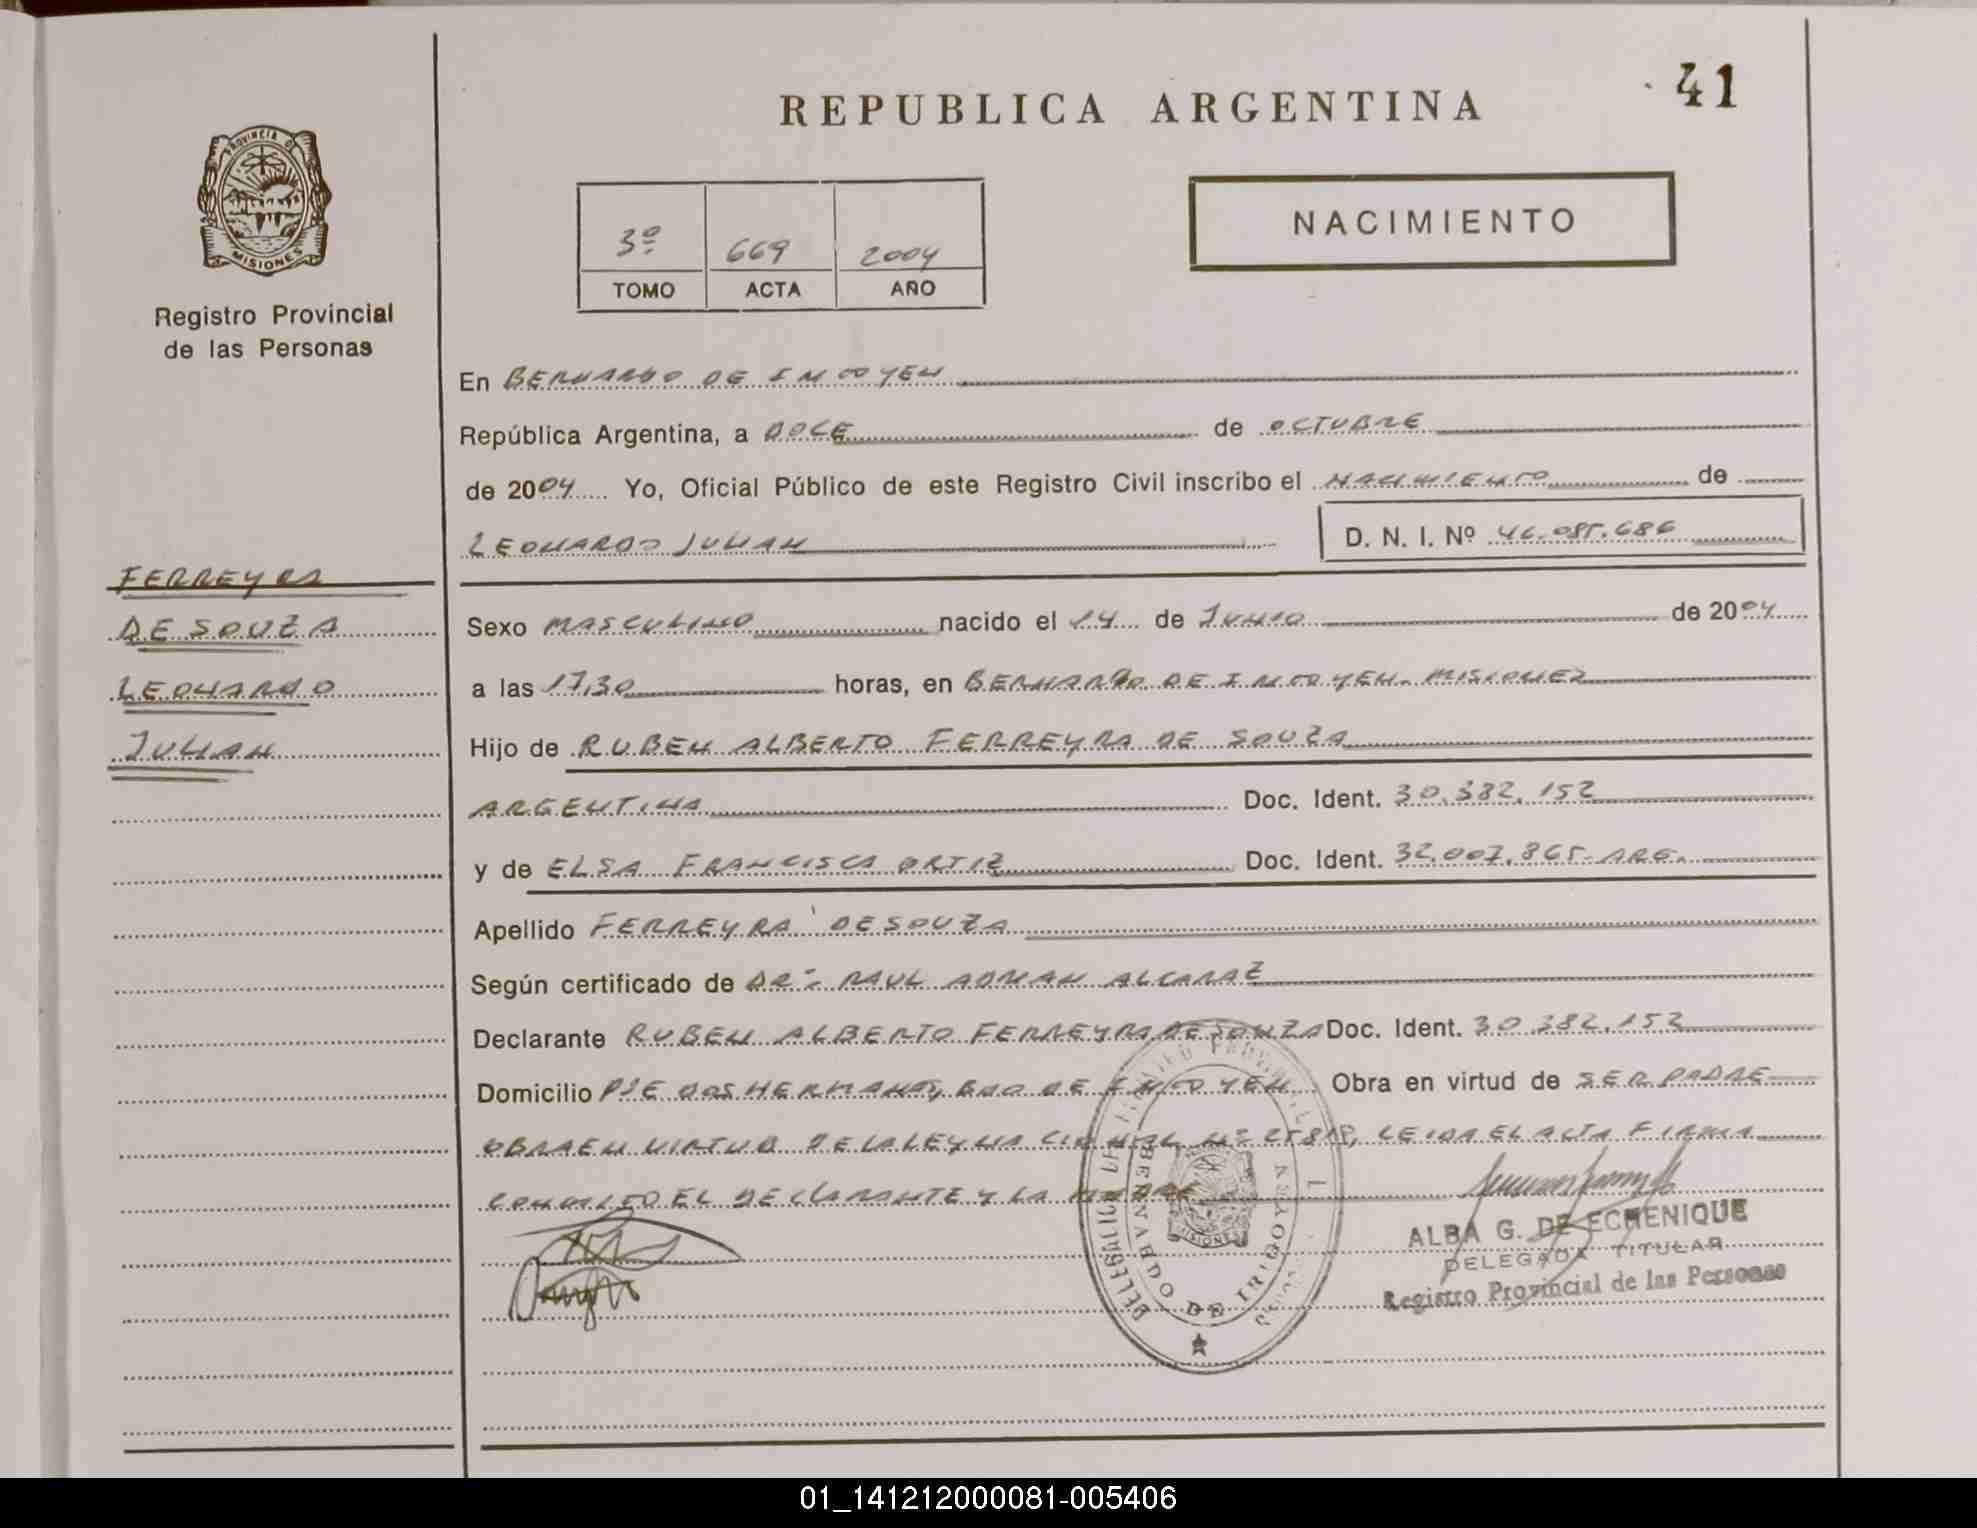 41
REPUBLICA ARGENTINA
PROVINCIA DE
MISIONES
Registro Provincial
de las Personas
3º 669 2004
TOMO ACTA AÑO
NACIMIENTO
En BERNARDO DE IRIGOYEN
República Argentina, a DOCE de OCTUBRE
de 2004 Yo, Oficial Público de este Registro Civil inscribo el NACIMIENTO de
LEONARDO JULIAN D. N. I. Nº 46.085.686
FERREYRA
DE SOUZA
LEONARDO
JULIAN
Sexo MASCULINO nacido el 14 de JUNIO de 2004
a las 17,30 horas, en BERNARDO DE IRIGOYEN. MISIONES
Hijo de RUBEN ALBERTO FERREYRA DE SOUZA
ARGENTINA Doc. Ident. 30.382.152
y de ELSA FRANCISCA ORTIZ Doc. Ident. 32.007.865- ARG.
Apellido FERREYRA DE SOUZA
Según certificado de DR. RAUL ADRIAN ALCARAZ
Declarante RUBEN ALBERTO FERREYRA DE SOUZA Doc. Ident. 30.382.152
Domicilio PJE DOS HERMANAS, BDO DE IRIGOYEN Obra en virtud de SER PADRE
OBRA EN VIRTUD DE LA LEY NACIONAL Nº 25818, LEIDA EL ACTA FIRMA
CONMIGO EL DECLARANTE Y LA MADRE
BERNARDO DE IRIGOYEN
MISIONES
ALBA G. DE ECHENIQUE
DELEGADA TITULAR
Registro Provincial de las Personas
01_141212000081-005406